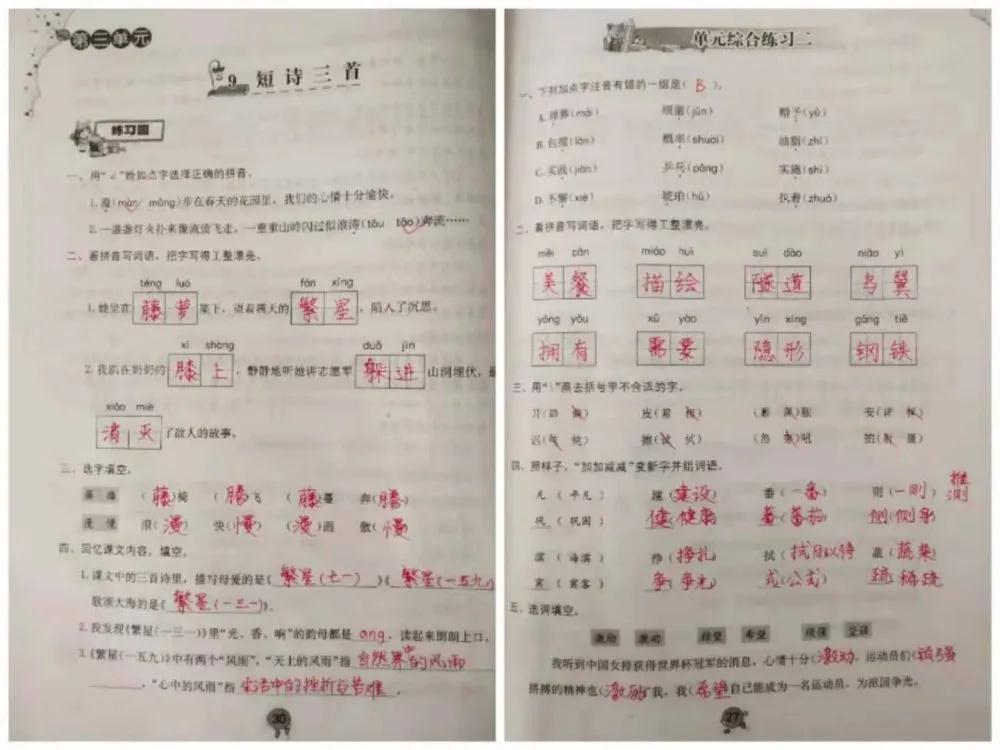 第三单元
9 短诗三首
练习园
一、用“√”给加点字选择正确的拼音。
1.漫(màn√ māng)步在春天的花园里，我们的心情十分愉快。
2.一盏盏灯火扑来像流萤飞走，一重重山岭闪过似浪涛(tāu tāo√)奔流……
二、看拼音写词语，把字写得工整漂亮。
téng luó fán xīng
1.她坐在藤萝架下，望着满天的繁星，陷入了沉思。
xī shàng duǒ jìn
2.我趴在奶奶的膝上，静静地听她讲志愿军躲进山洞埋伏，最
xiāo miè
消灭了敌人的故事。
三、选字填空。
藤 腾
(藤)椅 (腾)飞 (藤)蔓 奔(腾)
漫 慢
浪(漫) 快(慢) (漫)画 傲(慢)
四、回忆课文内容，填空。
1.课文中的三首诗里，描写母爱的是《繁星(七一)》《繁星(一五九)
歌颂大海的是《繁星(一三一)》。
2.我发现《繁星(一三一)》里“光、香、响”的韵母都是ang，读起来朗朗上口。
3.《繁星(一五九)》中有两个“风雨”，“天上的风雨”指自然界中的风雨
，“心中的风雨”指生活中的挫折与苦难。
30
单元综合练习二
一、下列加点字注音有错的一组是( B )。
A.埋葬(mái) 细菌(jūn)
B.包揽(lǎn) 概率(shuài) 油脂(zhī)
C.实践(jiàn) 乒乓(pāng) 实施(shī)
D.不懈(xiè) 琥珀(hǔ) 执着(zhuó)
二、看拼音写词语，把字写得工整漂亮。
měi cān miáo huì suì dào niǎo yì
美餐 描绘 隧道 鸟翼
yōng yǒu xū yào yǐn xíng gāng tiě
拥有 需要 隐形 钢铁
三、用“\”画去括号里不合适的字。
四、照样子，“加加减减”变新字并组词语。
凡(平凡) 建(建设) 番(一番) 则(一则) 推测
巩(巩固) 健(健康) 蕃(番茄) 侧(侧身)
滨(海滨) 挣(挣扎) 拭(拭目以待) 蔬(蔬菜)
宾(宾客) 争(争光) 式(公式) 疏(稀疏)
五、选词填空。
激励 激动 希望 顽强 坚强
我听到中国女排获得世界杯冠军的消息，心情十分(激动)，运动员们(顽强
拼搏的精神也(激励)我，我(希望)自己能成为一名运动员，为祖国争光。
27